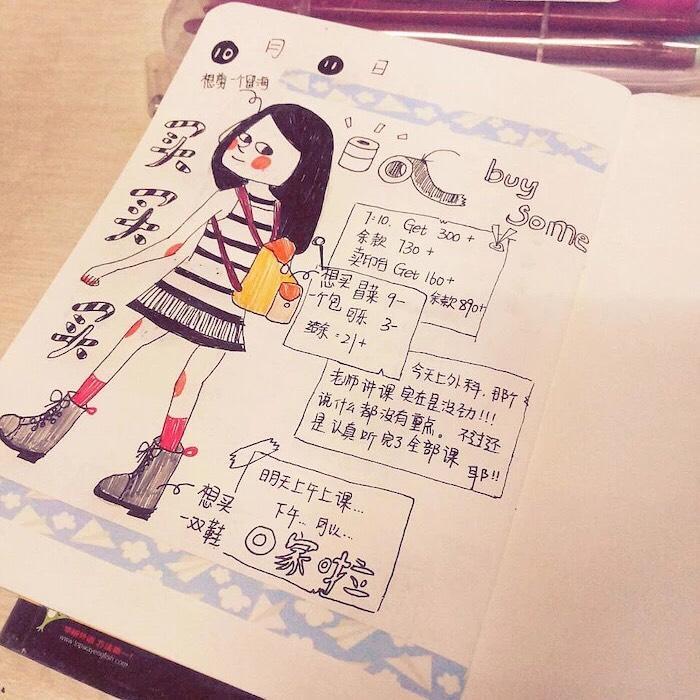 10月11日
想剪一个留海
买
买
买
buy
some
7:10. Get 300+
余款 730+
卖印台 Get 160+
余款 890+
想买
一个包
冒菜 9-
可乐 3-
=21+
今天上外科. 那个
老师讲课 实在是没劲!!!
说什么都没有重点。不过还
是认真听完了全部课 耶!!
明天上午上课...
下午.. 可以...
回家啦
想买
一双鞋
www.topwayenglish.com